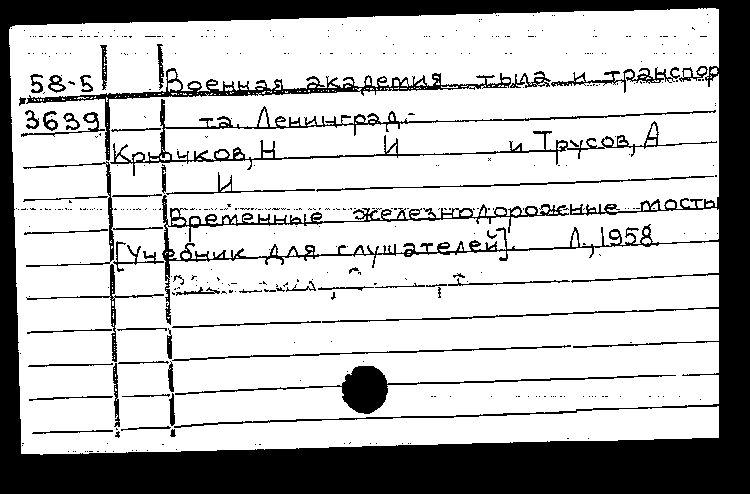 58-5 Военная академия тыла и транспор
3639 та. Ленинград.-
Крючков, Н И и Трусов, А
И
Временные железнодорожные мосты
[Учебник для слушателей]. Л., 1958